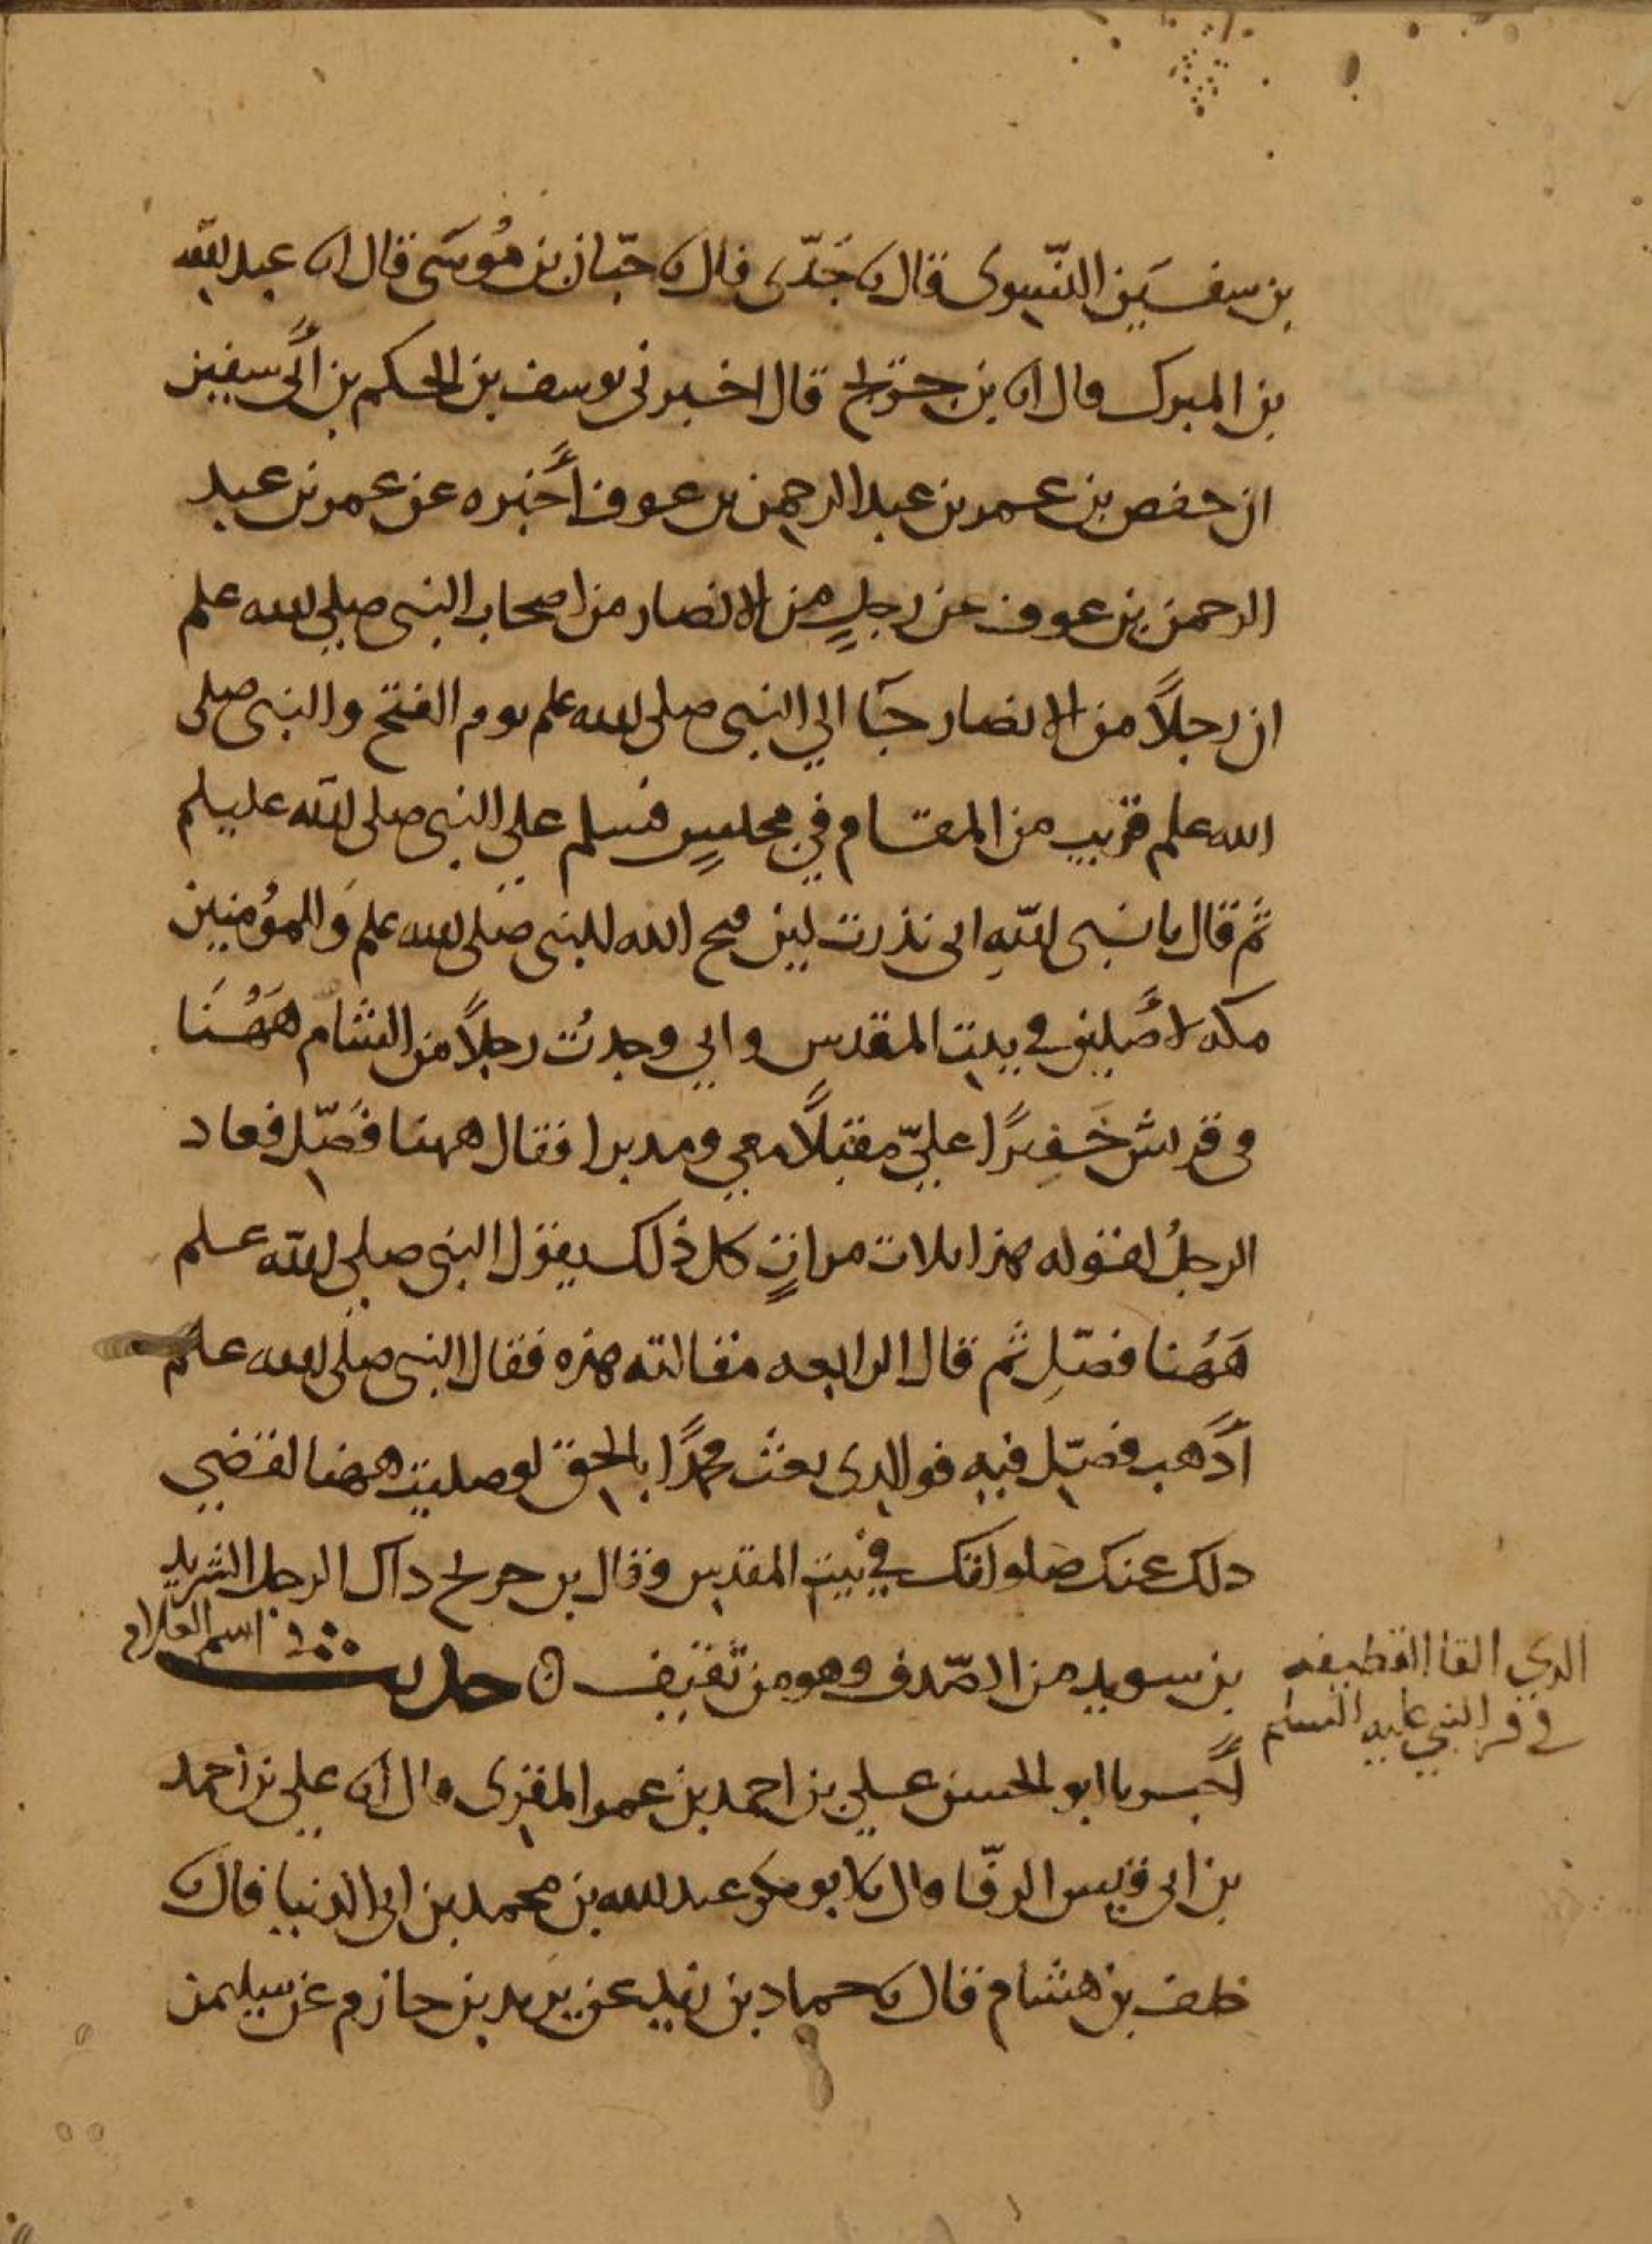 بن سفين النسوى قال نا جدى قال نا حبان بن موسى قال انا عبد الله
بن المبرك قال انا بن جريج قال اخبرنى يوسف بن الحكم بن أبى سفين
ان حفص بن عمر بن عبد الرحمن بن عوف أخبره عن عمر بن عبد
الرحمن بن عوف عن رجلٍ من الانصار من اصحاب النبى صلى الله علم
ان رجلاً من الانصار جآ الي النبى صلى الله علم يوم الفتح والنبى صلى
الله علم قريب من المقام في مجلسٍ فسلم علي النبى صلى الله عليلم
ثم قال يا نبى اللهِ انى نذرت لين فتح الله للنبى صلى الله علم وَالمؤمنين
مكه لأصلين في بيت المقدس واني وجدتُ رجلاً من الشام هَهُنَا
فى قريش خَفِيرًا عليّ مقبلاً معي ومدبرا فقال ههنا فَصَلّ فعاد
الرجلُ لقوله هذا ثلاث مراتٍ كل ذلك يقول النبى صلى الله علم
هَهُنا فصلِ ثم قال الرابعه مقالته هذه فقال النبى صلى الله علم
أذهب فصل فيه فوالذى بعث محمدًا بالحق لو صليت ههنا لقضي
ذلك عنك صلواتك في بيت المقدس وقال بن جريج ذاك الرجل الشريد
بن سويد من الصدف وهو من ثقيف ٥ حديث اسم الغلام
الذي القا القطيفه
في قبر النبي عليه السلم
أخبرنا ابو الحسن علي بن احمد بن عمر المقرى قال انا علي بن أحمد
بن ابى قيس الرفا قال نا ابو بكر عبد الله بن محمد بن ابى الدنيا قال نا
خلف بن هشام قال نا حماد بن زيد عن يزيد بن حازم عن سليمن